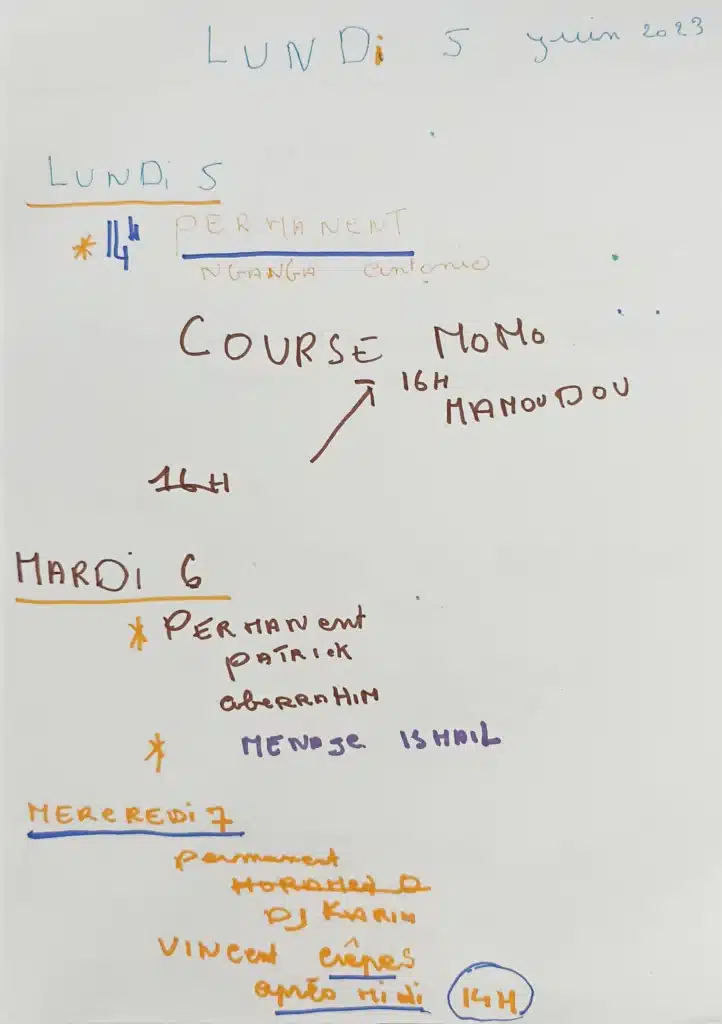 LUNDi 5 juin 2023
LUNDi 5
* 14H PERMANENT
NGANGA antonio
COURSE MOMO
16H
MAMOUDOU
16H
MARDi 6
* PERMANent
PATRICK
abeRRAHIM
* MENAGE ISMAIL
MERCREDi 7
permanent
MOHAMED D
DJ KARIM
VINCent crêpes
après Midi 14H